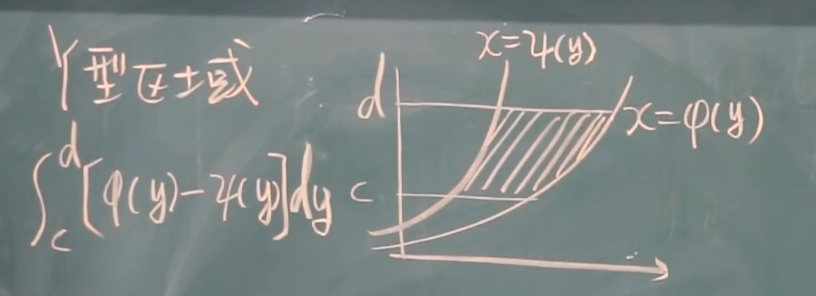 Y型区域
∫_c^d [φ(y)-ψ(y)]dy
x=ψ(y)
d
x=φ(y)
c